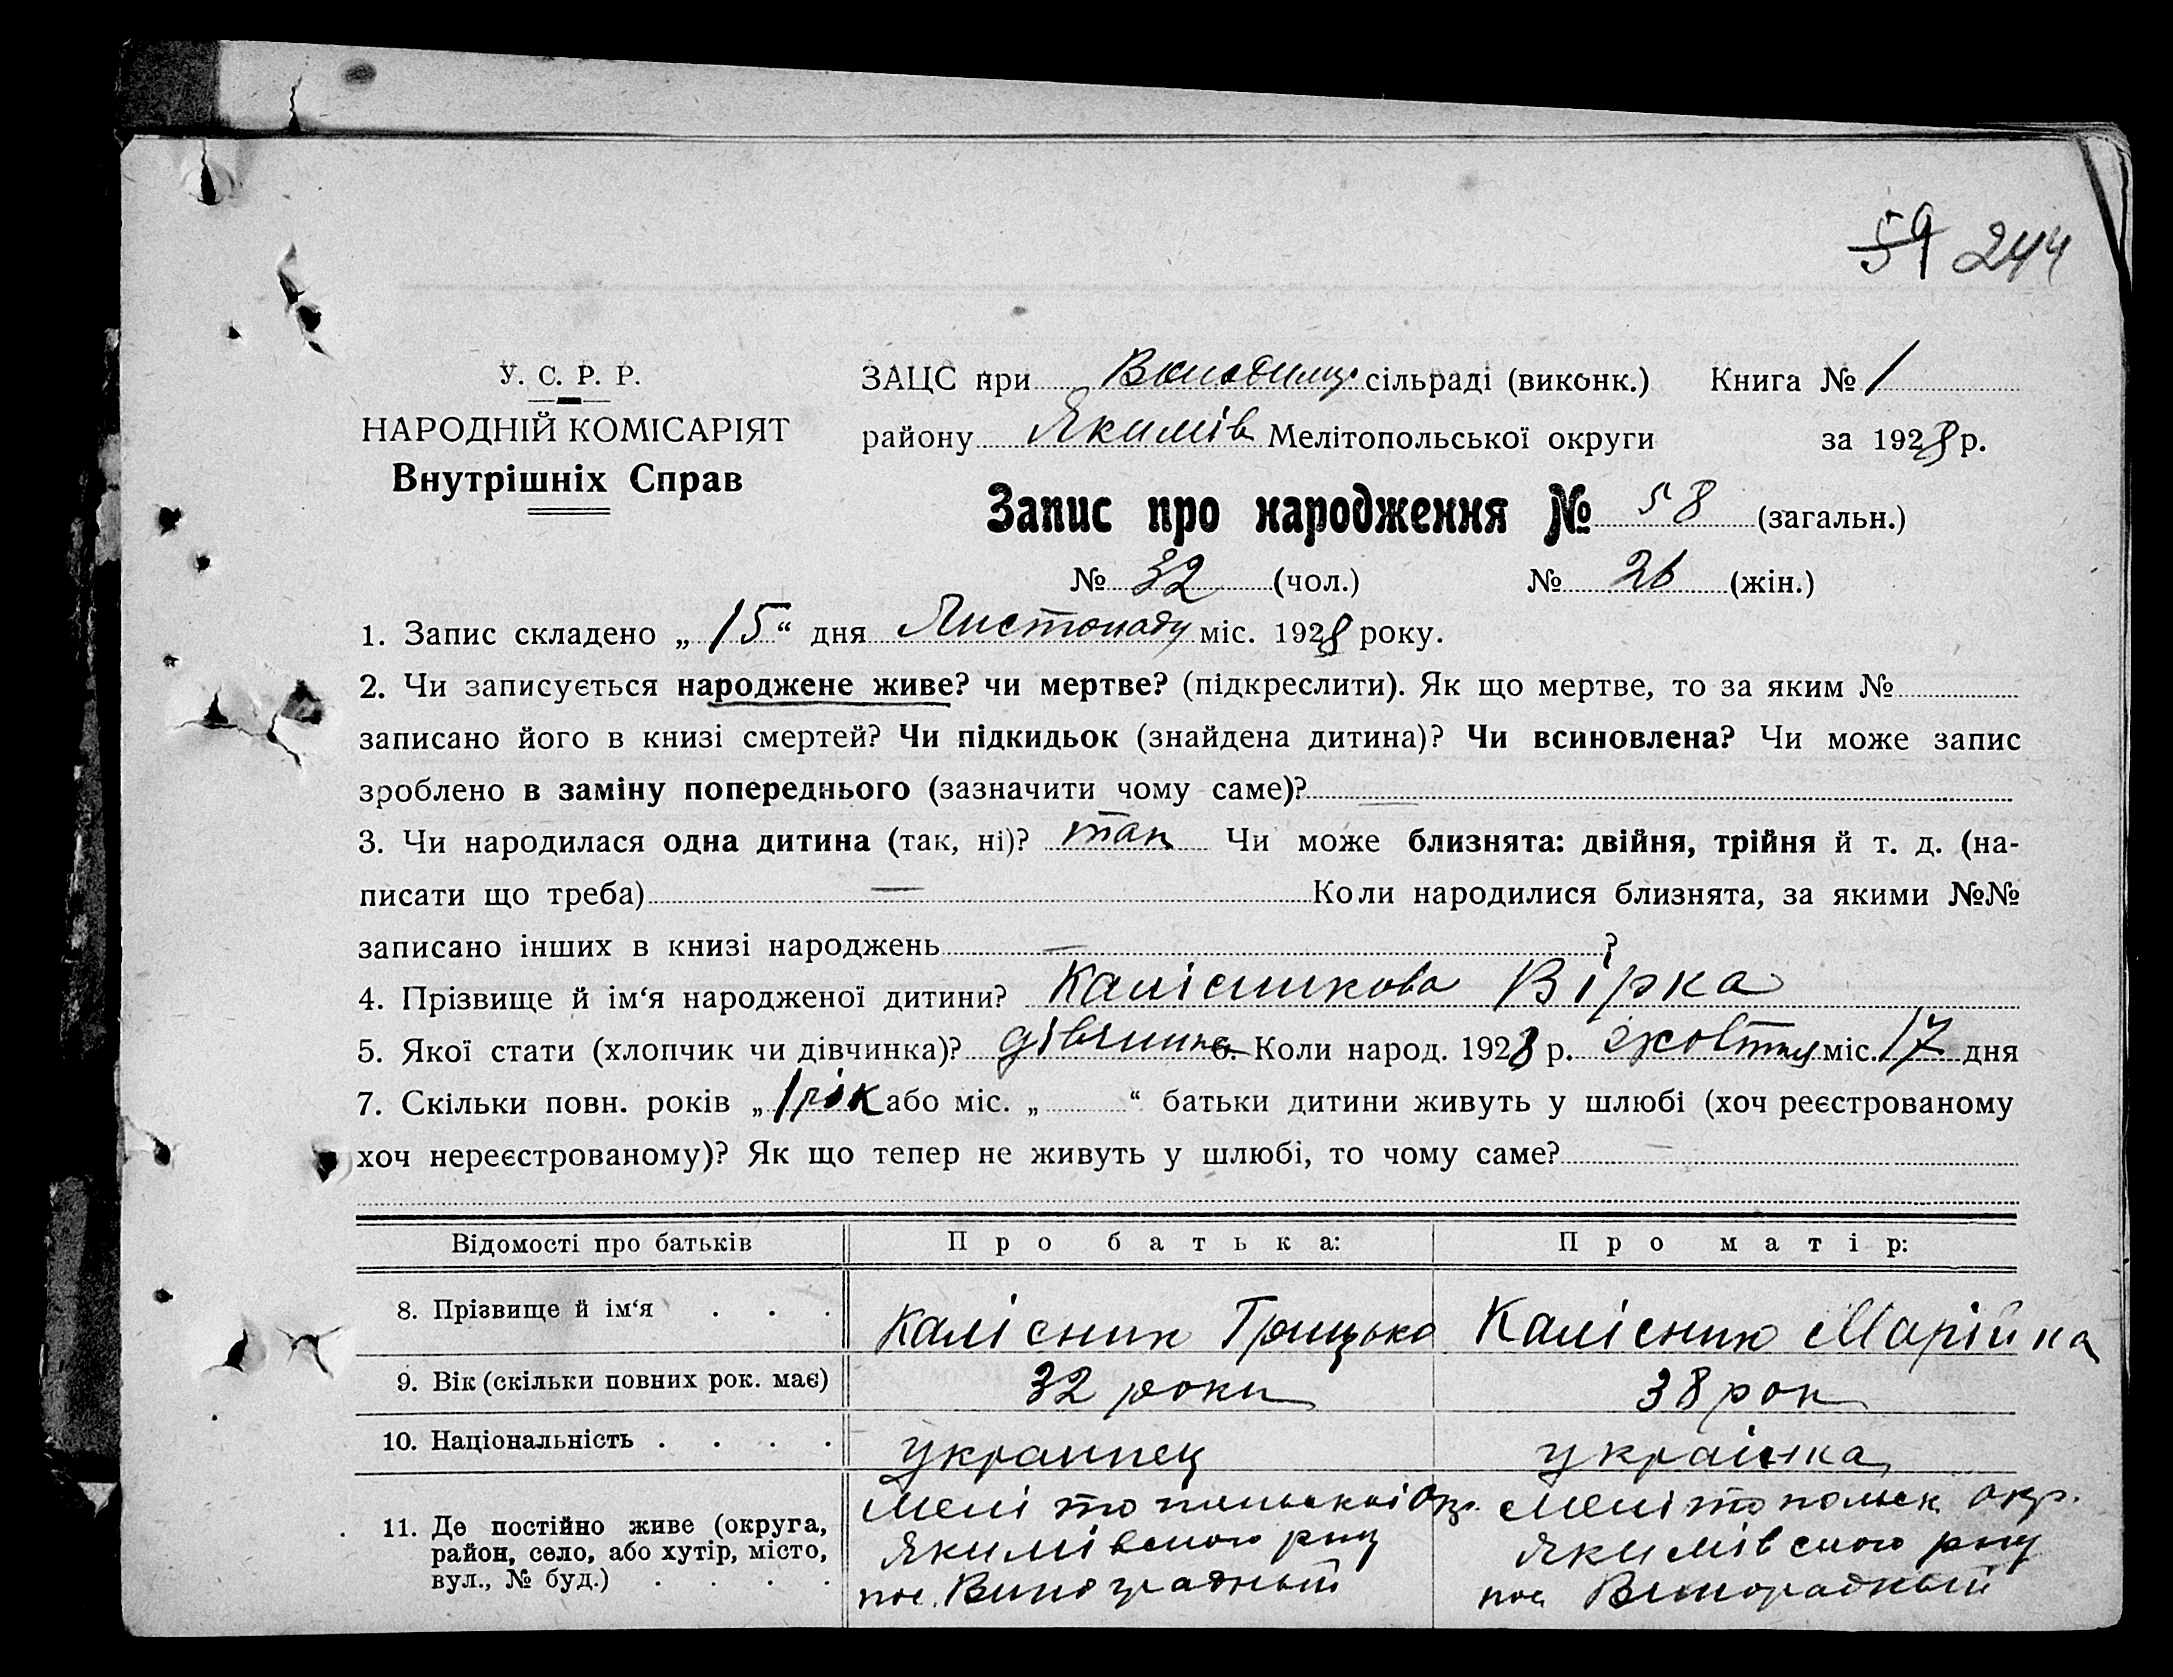 59 244
У. С. Р. Р.
НАРОДНІЙ КОМІСАРІЯТ
Внутрішніх Справ
ЗАЦС при сільраді (виконк.) Книга № 1
району Якимів Мелітопольської округи за 1928 р.
Запис про народження № 58 (загальн.)
№ 32 (чол.) № 26 (жін.)
1. Запис складено „ 15 “ дня Листопаду міс. 1928 року.
2. Чи записується народжене живе? чи мертве? (підкреслити). Як що мертве, то за яким №
записано його в книзі смертей? Чи підкидьок (знайдена дитина)? Чи всиновлена? Чи може запис
зроблено в заміну попереднього (зазначити чому саме)? —
3. Чи народилася одна дитина (так, ні)? так Чи може близнята: двійня, трійня й т. д. (на-
писати що треба) — Коли народилися близнята, за якими №№
записано інших в книзі народжень — ?
4. Прізвище й ім‘я народженої дитини? Калісникова Вірка
5. Якої стати (хлопчик чи дівчинка)? дівчина Коли народ. 1928 р. жовтня міс. 17 дня
7. Скільки повн. років „ 1 рік або міс. „ “ батьки дитини живуть у шлюбі (хоч реєстрованому
хоч нереєстрованому)? Як що тепер не живуть у шлюбі, то чому саме? —
Відомості про батьків Про батька: Про матір:
8. Прізвище й ім‘я . . . Калісник Грицько Калісник Марійка
9. Вік (скільки повних рок. має) 32 роки 38 рок
10. Національність . . . . украинец українка
11. Де постійно живе (округа, Мелітопольскої Окр. Мелітопольск окр.
район, село, або хутір, місто, Якимівского рну Якимівского рну
вул., № буд.) . . . . пос. Виноградный пос Виноградный